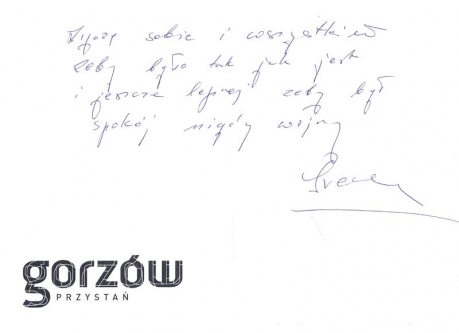 Życzę sobie i wszystkim
żeby było tak jak jest
i jeszcze lepiej żeby był
spokój nigdy wojny
gorzów
PRZYSTAŃ